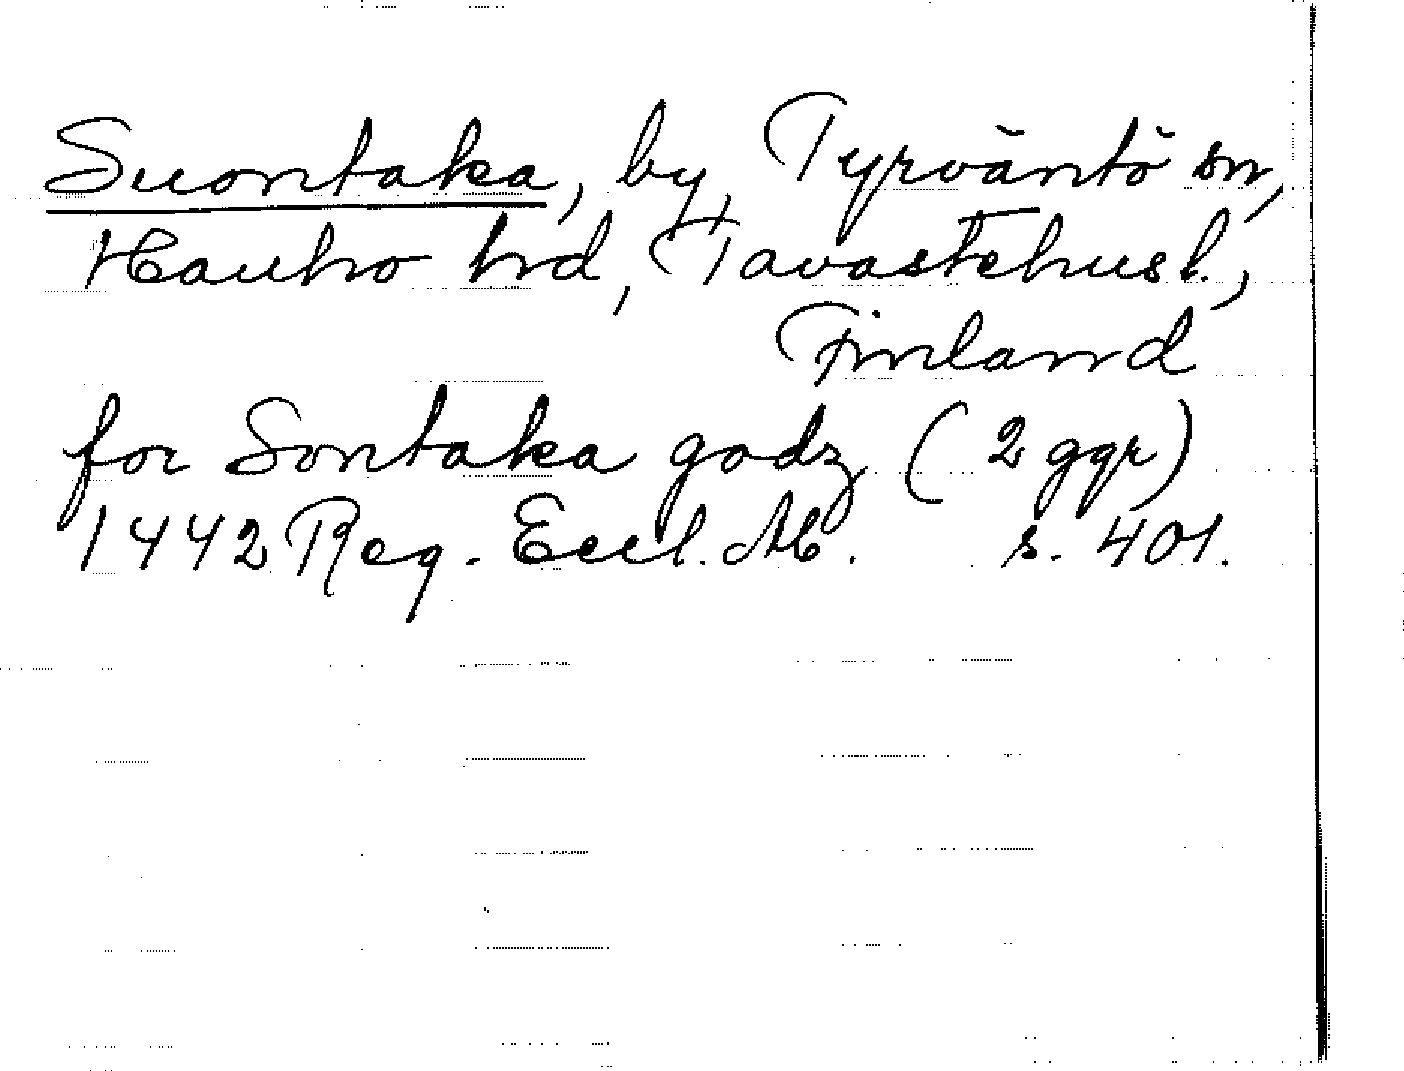 Suontaka, by, Tyrväntö sn,
Hauho hrd, Tavastehusl.,
Finland
for Sontaka godz (2 ggr)
1442 Reg. Eccl. Ab. s. 401.